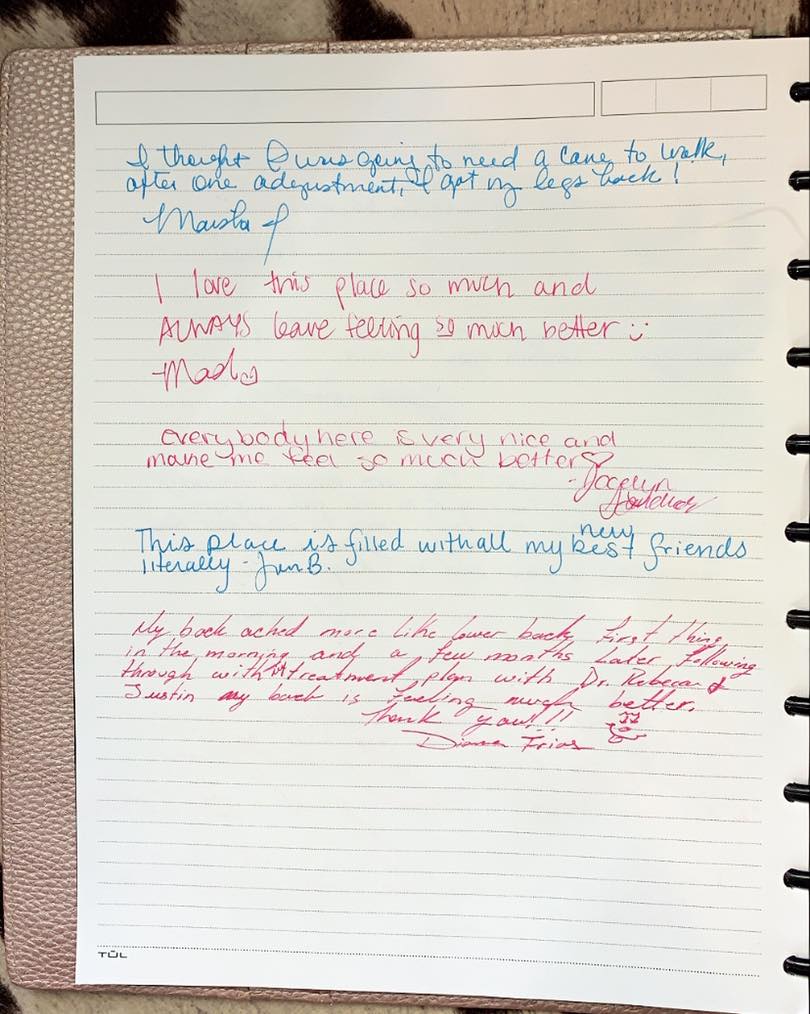 I thought I was going to need a cane to walk,
after one adgustment, I got my legs back!
Marsha
I love this place so much and
ALWAYS leave feeling so much better
-Mad
everybody here is very nice and
make me feel so much better
-Jocelyn
new
This place is filled with all my best friends
literally - Jun B.
My back ached more like lower back, first thing
in the morning and a few months later, following
through with treatment plan with Dr. Rebecca &
Justin my back is feeling much better.
Thank you!!!
Dianna Frias
TŪL